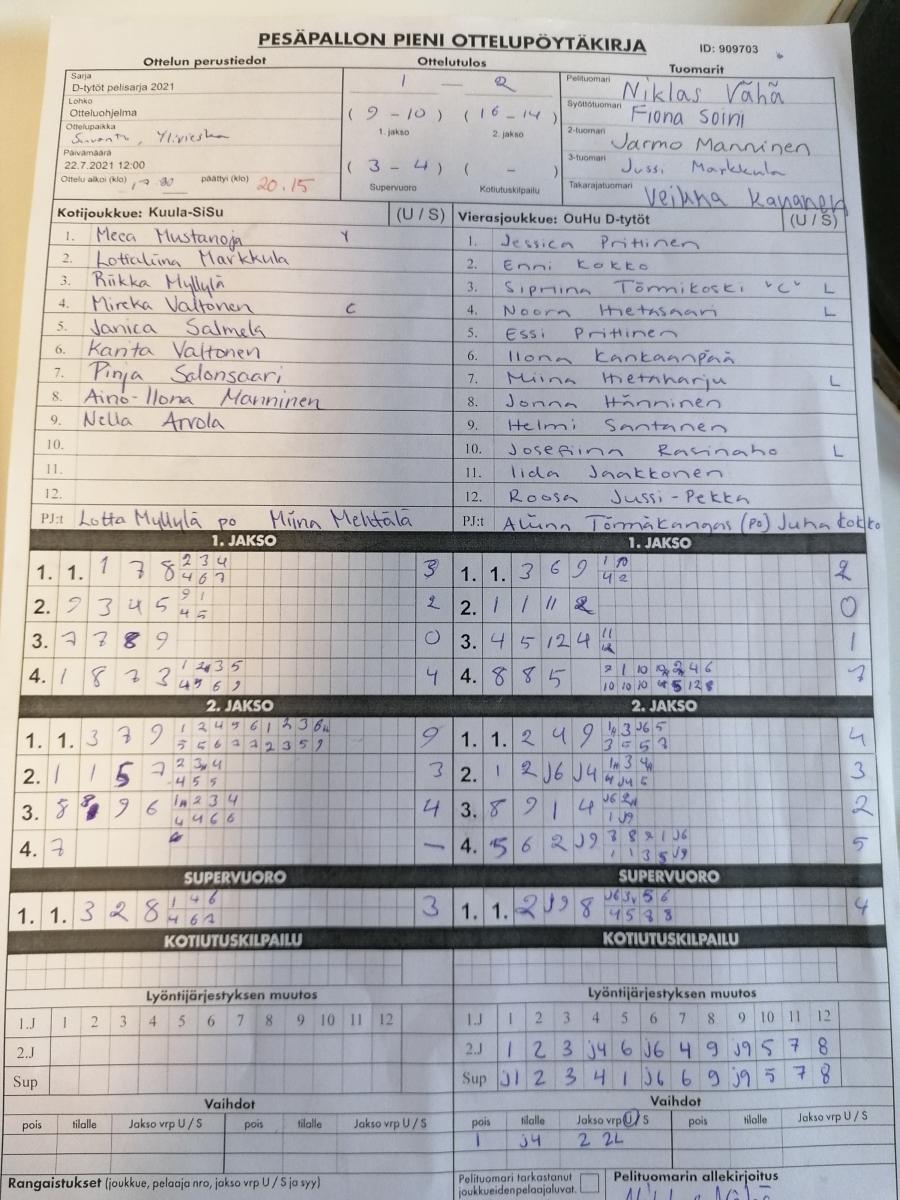 PESÄPALLON PIENI OTTELUPÖYTÄKIRJA ID: 909703
Ottelun perustiedot Ottelutulos Tuomarit
Sarja
D-tytöt pelisarja 2021
Lohko
Otteluohjelma
Ottelupaikka
Ylivieska
Päivämäärä
22.7.2021 12:00
Ottelu alkoi (klo) päättyi (klo) 20.15
1 — 2
( 9 - 10 ) ( 16 - 14 )
1. jakso 2. jakso
( 3 - 4 ) ( - )
Supervuoro Kotiutuskilpailu
Pelituomari Niklas Vähä
Syöttötuomari Fiona Soini
2-tuomari Jarmo Manninen
3-tuomari Jussi Markkula
Takarajatuomari Veikka
Kotijoukkue: Kuula-SiSu (U / S)
1. Meea Mustanoja Y
2. Lotialiina Markkula
3. Riikka Myllylä
4. Mireka Valtonen C
5. Janica Salmela
6. Karita Valtonen
7. Pinja Salonsaari
8. Aino-Ilona Manninen
9. Nella Arvola
10.
11.
12.
PJ:t Lotta Myllylä po Miina Mehtälä
Vierasjoukkue: OuHu D-tytöt (U / S)
1. Jessica Prittinen
2. Enni Kokko
3. Törmikoski "C" L
4. Noora Hietasaari L
5. Essi Prittinen
6. Ilona Kankaanpää
7. Miina Hietaharju L
8. Jonna Hänninen
9. Helmi Santanen
10. Josefiina Rasinaho L
11. Iida Jaakkonen
12. Roosa Jussi-Pekka
PJ:t Törmäkangas (po) Juha Kokko
1. JAKSO 1. JAKSO
1. 1. 1 7 8 2 3 4 3
4 6 7
2. 9 3 4 5 9 1 2
4 5
3. 7 7 8 9 0
4. 1 8 7 3 4
1. 1. 3 6 9 1 10 2
4 2
2. 1 1 11 2 0
3. 4 5 12 4 11 1
4. 8 8 5 7
2. JAKSO 2. JAKSO
1. 1. 3 7 9 1 2 4 5 6 1 2 3 6 9
5 5 6 7 7 2 3 5 9
2. 1 1 5 7 2 3 4 3
4 5 5
3. 8 8 9 6 1 2 3 4 4
4 4 6 6
4. 7 —
1. 1. 2 4 9 4
3 5 5 7
2. 1 2 J6 J4 3
4 J4 5
3. 8 9 1 4 J6 2 2
1 J9
4. 5 6 2 J9 5
1 1 3 5 J9
SUPERVUORO SUPERVUORO
1. 1. 3 2 8 1 4 6 3
4 6 7
1. 1. 2 J9 8 J6 3 5 6 4
4 5 8 8
KOTIUTUSKILPAILU KOTIUTUSKILPAILU
Lyöntijärjestyksen muutos Lyöntijärjestyksen muutos
1.J 1 2 3 4 5 6 7 8 9 10 11 12
2.J
Sup
1.J 1 2 3 4 5 6 7 8 9 10 11 12
2.J 1 2 3 J4 6 J6 4 9 J9 5 7 8
Sup J1 2 3 4 1 J6 6 9 J9 5 7 8
Vaihdot Vaihdot
pois tilalle Jakso vrp U / S pois tilalle Jakso vrp U / S
pois tilalle Jakso vrp U / S pois tilalle Jakso vrp U / S
1 J4 2 2L
Rangaistukset (joukkue, pelaaja nro, jakso vrp U / S ja syy)
Pelituomari tarkastanut
joukkueidenpelaajaluvat.
Pelituomarin allekirjoitus